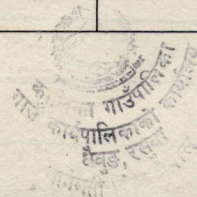 कालिका गाउँपालिका
गाउँ कार्यपालिकाको कार्यालय
धैवुङ, रसुवा